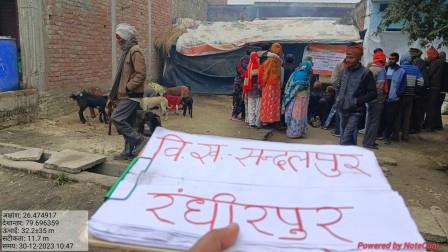 वि. स. सन्दलपुर
रंधीरपुर
अक्षांश: 26.474917
देशान्तर: 79.696359
ऊंचाई: 32.2±35 m
सटीकता: 11.7 m
समय: 30-12-2023 10:47
Powered by NoteCam